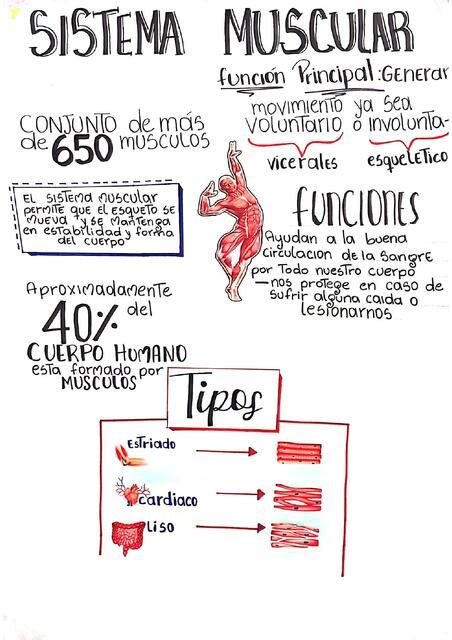 SISTEMA MUSCULAR
función Principal: GENERAR
movimiento ya sea
voluntario o involunta-
vicerales esqueletico
CONJUNTO de más
de 650 MUSCULOS
EL SISTEMA MUSCULAR
PERMITE QUE EL ESQUETO SE
MUEVA Y SE MANTENGA
EN ESTABILIDAD Y FORMA
DEL CUERPO
FUNCIONES
Ayudan a la buena
circulacion de la sangre
por todo nuestro cuerpo
—nos protege en caso de
sufrir alguna caida o
lesionarnos
Aproximadamente
40% del
CUERPO HUMANO
esta formado por
MUSCULOS
Tipos
Estriado
cardiaco
Liso